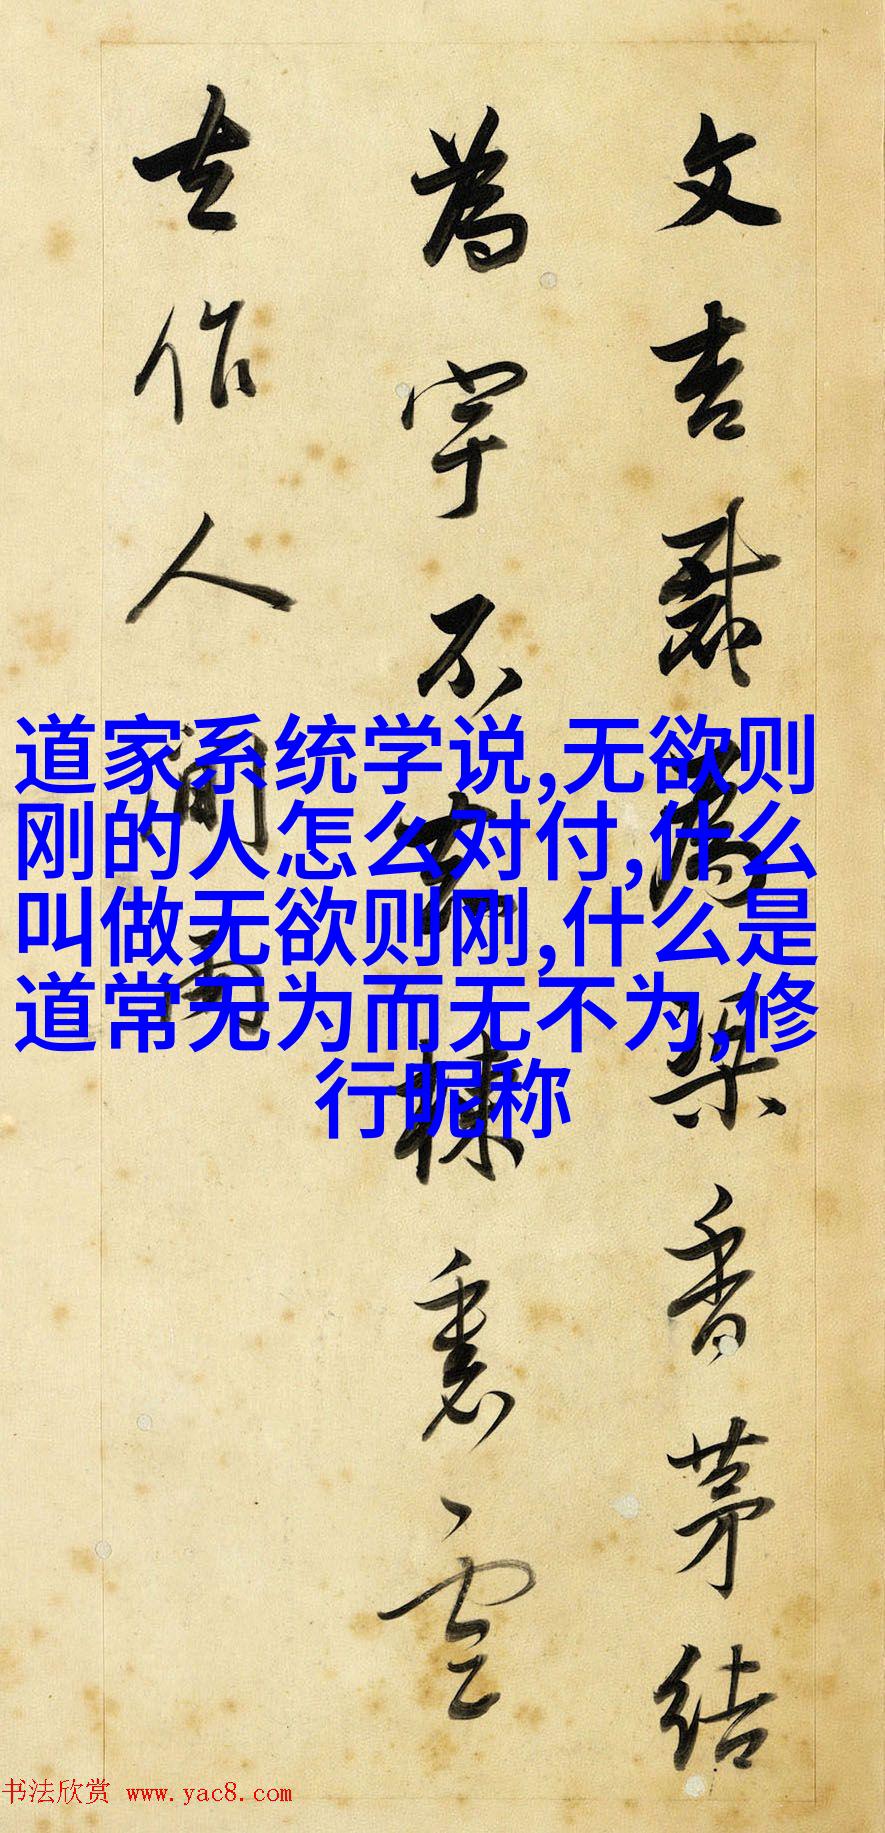 文杏裁為梁香茅結
為宇不知棟裏雲
去作人間雨
道家系统学说,无欲则
刚的人怎么对付,什么
叫做无欲则刚,什么是
道常无为而无不为,修
行昵称
书法欣赏 www.yac8.com